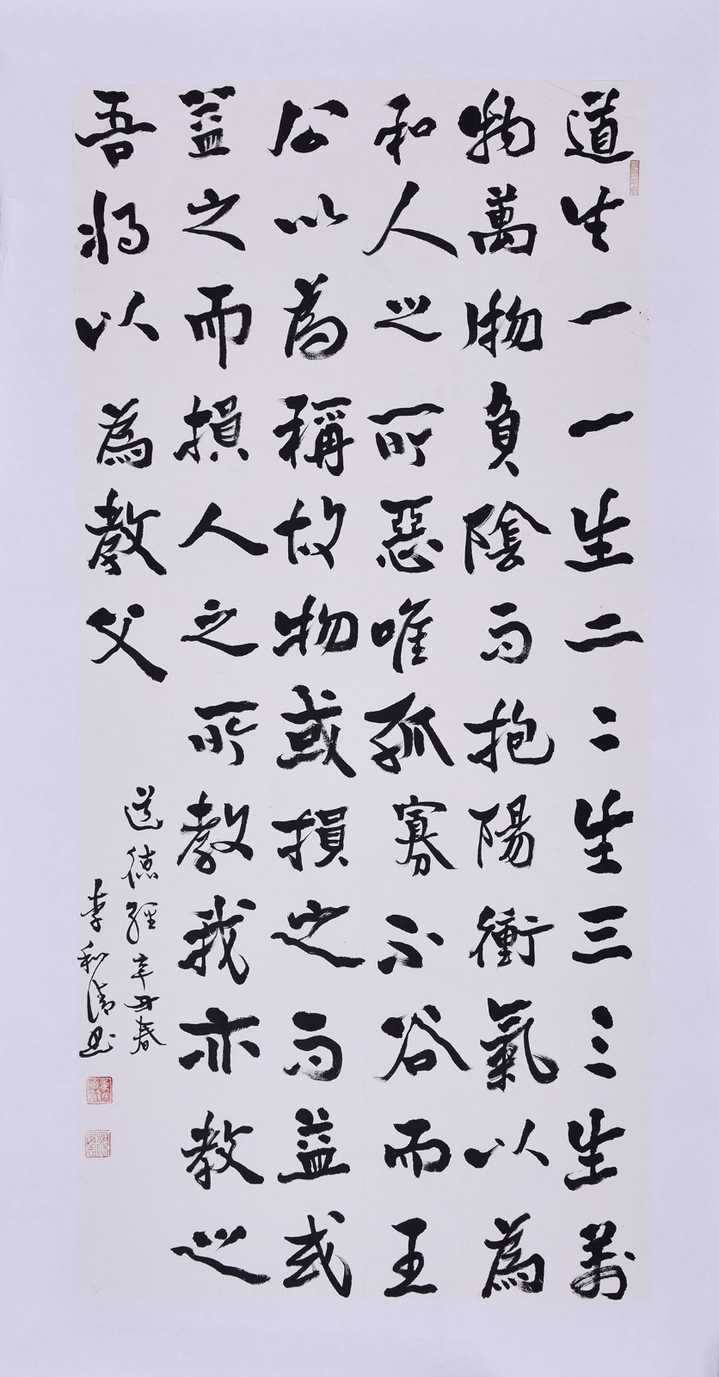 道生一一生二二生三三生萬
物萬物負陰而抱陽衝氣以為
和人之所惡唯孤寡不谷而王
公以為稱故物或損之而益或
益之而損人之所教我亦教之
吾将以為教父
道德經辛丑春
李和清书